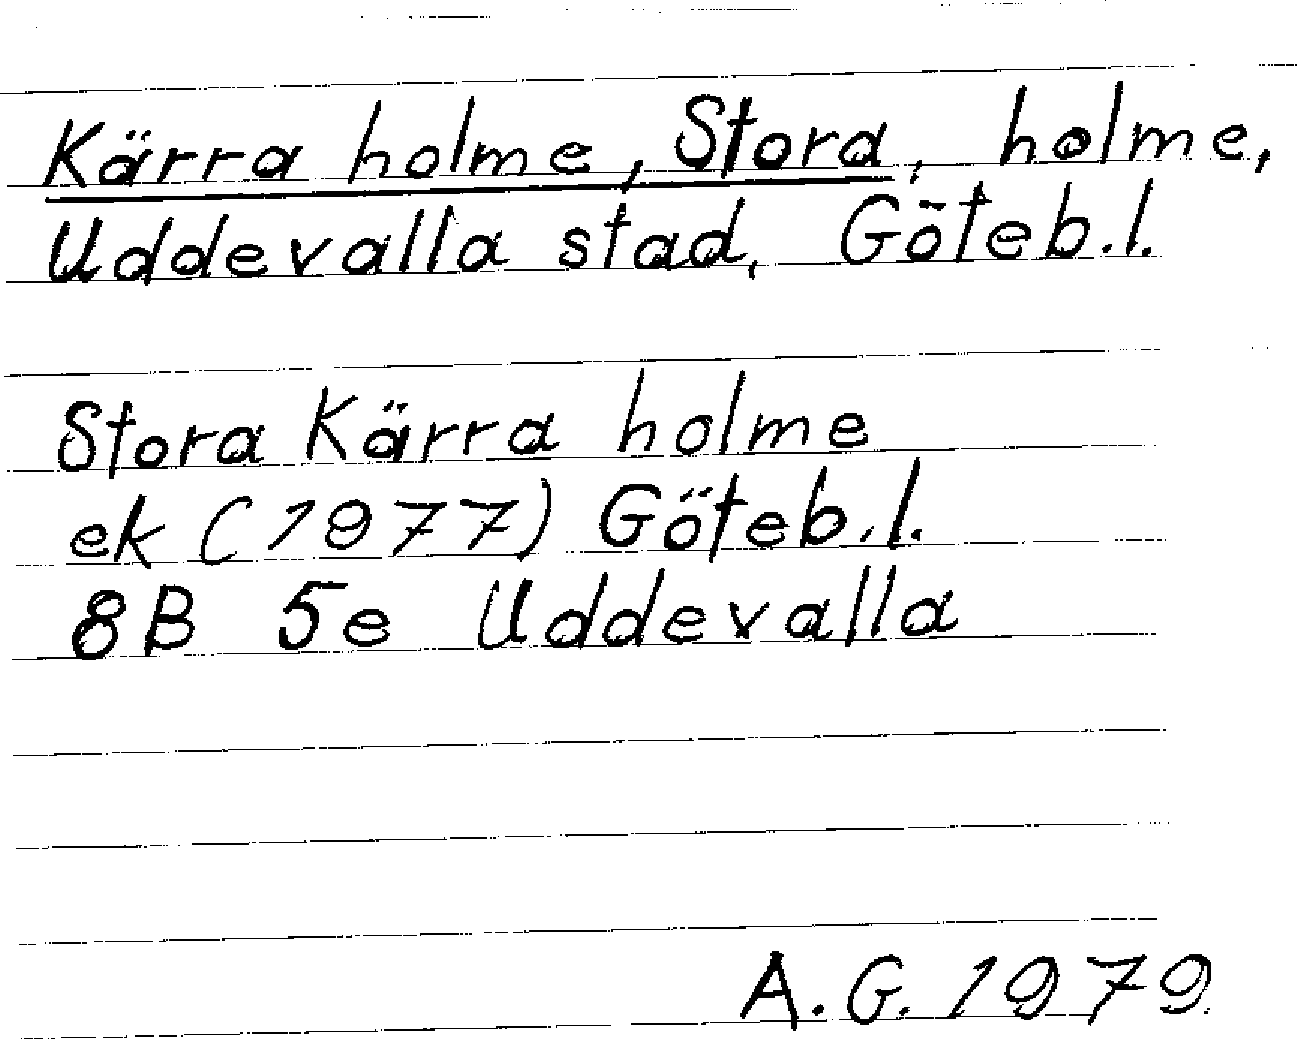 Kärra holme, Stora, holme,
Uddevalla stad, Göteb.l.
Stora Kärra holme
ek (1977) Göteb.l.
8B 5e Uddevalla
A.G. 1979.